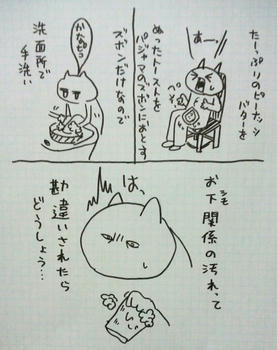 たーっぷりのピーナッツ
バターを
ぬったトーストを
パジャマのズボンにおとす
あーっ
ズボンだけなので
洗面所で
手洗い
かなピこ
お下関係の汚れって
シモ
は、
勘違いされたら
どうしよう…